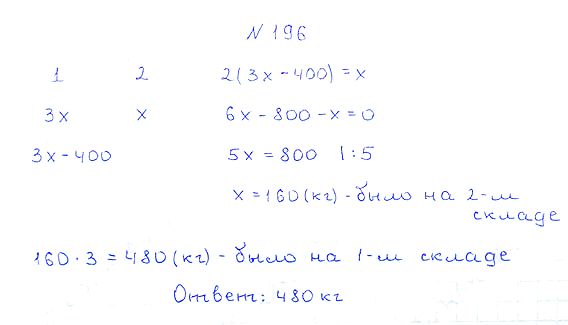 N 196
1 2 2(3x - 400) = x
3x x 6x - 800 - x = 0
3x - 400 5x = 800 |:5
x = 160 (кг) - было на 2-м
складе
160 · 3 = 480 (кг) - было на 1-м складе
Ответ: 480 кг